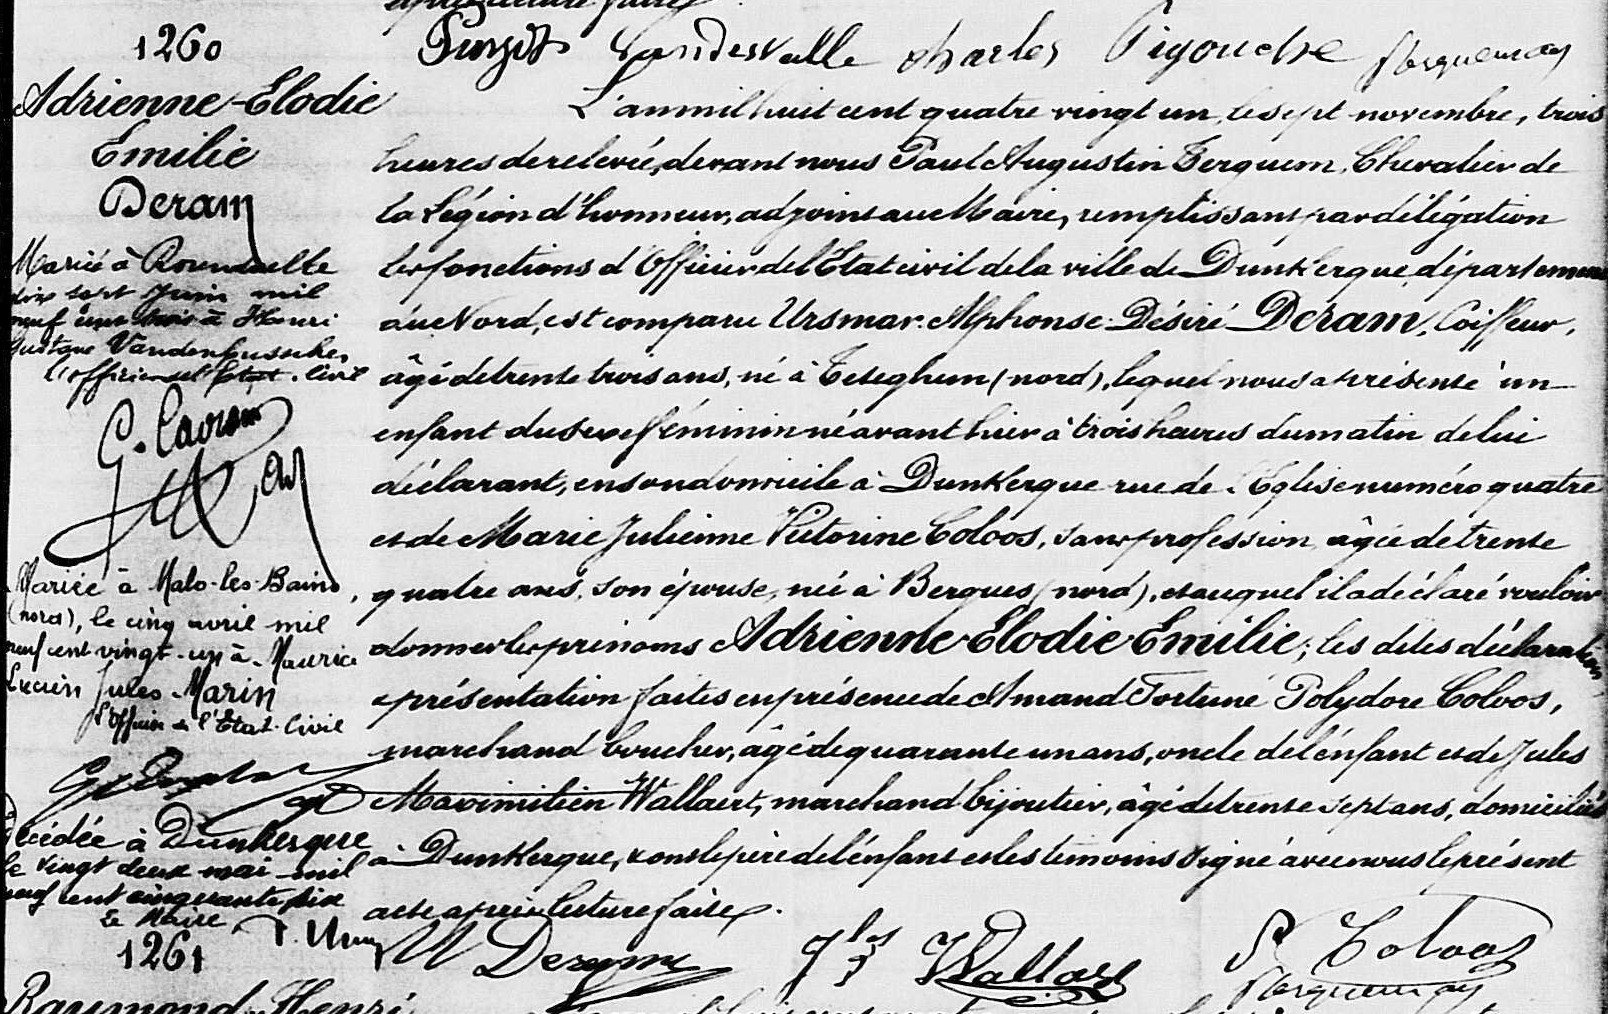 après lecture faite
Vandewalle Charles Pigouche P Terquem
1260
Adrienne-Elodie
Emilie
Deram
Mariée à
dix sept Juin mil
neuf cent trois à Henri
Gustave Vandenbussche,
L'officier de l'Etat civil
G.
Mariée à Malo-les-Bains
(nord), le cinq avril mil
neuf cent vingt-un à Maurice
Lucien Jules Marin
L'Officier de l'Etat-Civil
Décédée à Dunkerque
le vingt deux mai mil
neuf cent cinquante six
Le Maire,
1261
Raymond Henri
L'an mil huit cent quatre vingt un, le sept novembre, trois
heures de relevée, devant nous Paul Augustin Terquem, Chevalier de
la Légion d'honneur, adjoint au Maire, remplissant par délégation
les fonctions d'Officier de l'Etat civil de la ville de Dunkerque, département
du Nord, est comparu Ursmar Alphonse Désiré Deram, Coiffeur,
âgé de trente trois ans, né à Teteghem (nord), lequel nous a présenté un
enfant du sexe féminin né avant hier à trois heures du matin de lui
déclarant, en son domicile à Dunkerque rue de l'Eglise numéro quatre
et de Marie Julienne Victorine Coloos, sans profession, âgée de trente
quatre ans, son épouse, née à Bergues (nord), et auquel il a déclaré vouloir
donner les prénoms Adrienne Elodie Emilie; les dites déclaration
et présentation faites en présence de Amand Fortuné Polydore Coloos,
marchand boucher, âgé de quarante un ans, oncle de l'enfant et de Jules
Maximilien Wallaert, marchand bijoutier, âgé de trente sept ans, domiciliés
à Dunkerque, et ont le père de l'enfant et les témoins signé avec nous le présent
acte après lecture faite.
Deram Jles Wallaert P Coloos
P Terquem